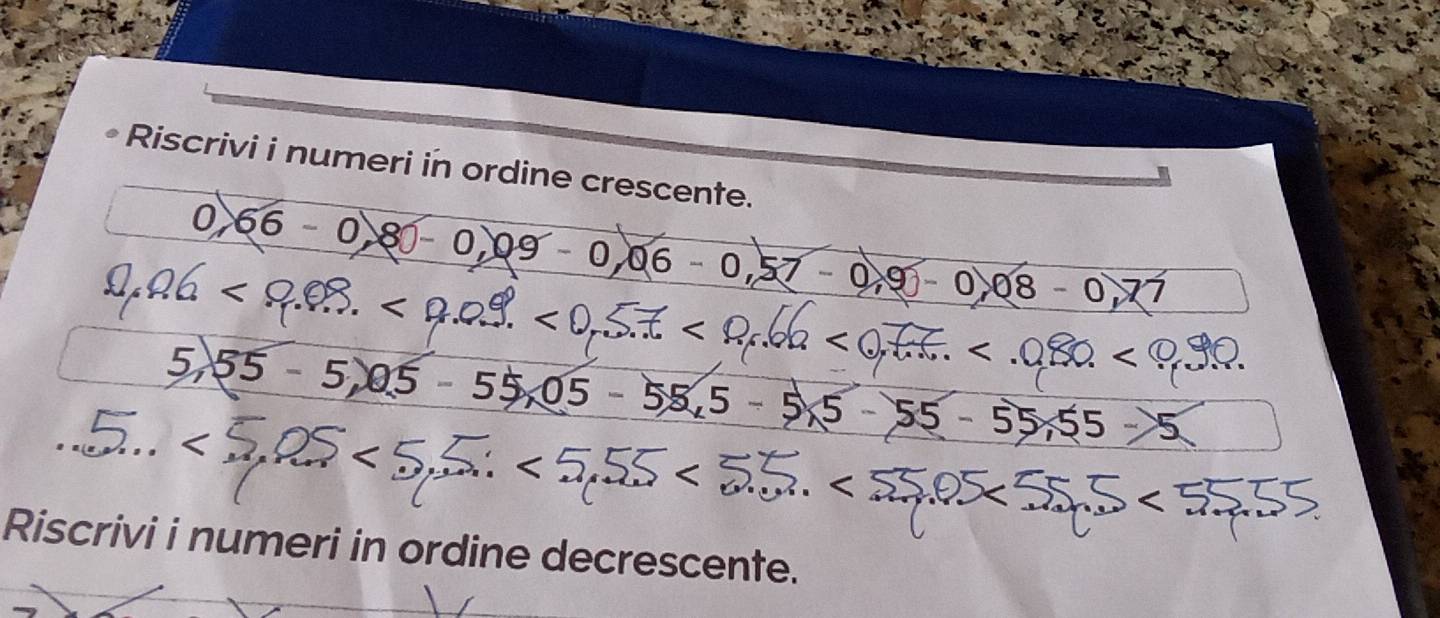 • Riscrivi i numeri in ordine crescente.
0,66 - 0,80 - 0,09 - 0,06 - 0,57 - 0,90 - 0,08 - 0,77
0,06 < 0,08 < 0,09 < 0,57 < 0,66 < 0,77 < 0,80 < 0,90
5,55 - 5,05 - 55,05 - 55,5 - 5,5 - 55 - 55,55 - 5
5 < 5,05 < 5,5 < 5,55 < 55 < 55,05 < 55,5 < 55,55
Riscrivi i numeri in ordine decrescente.